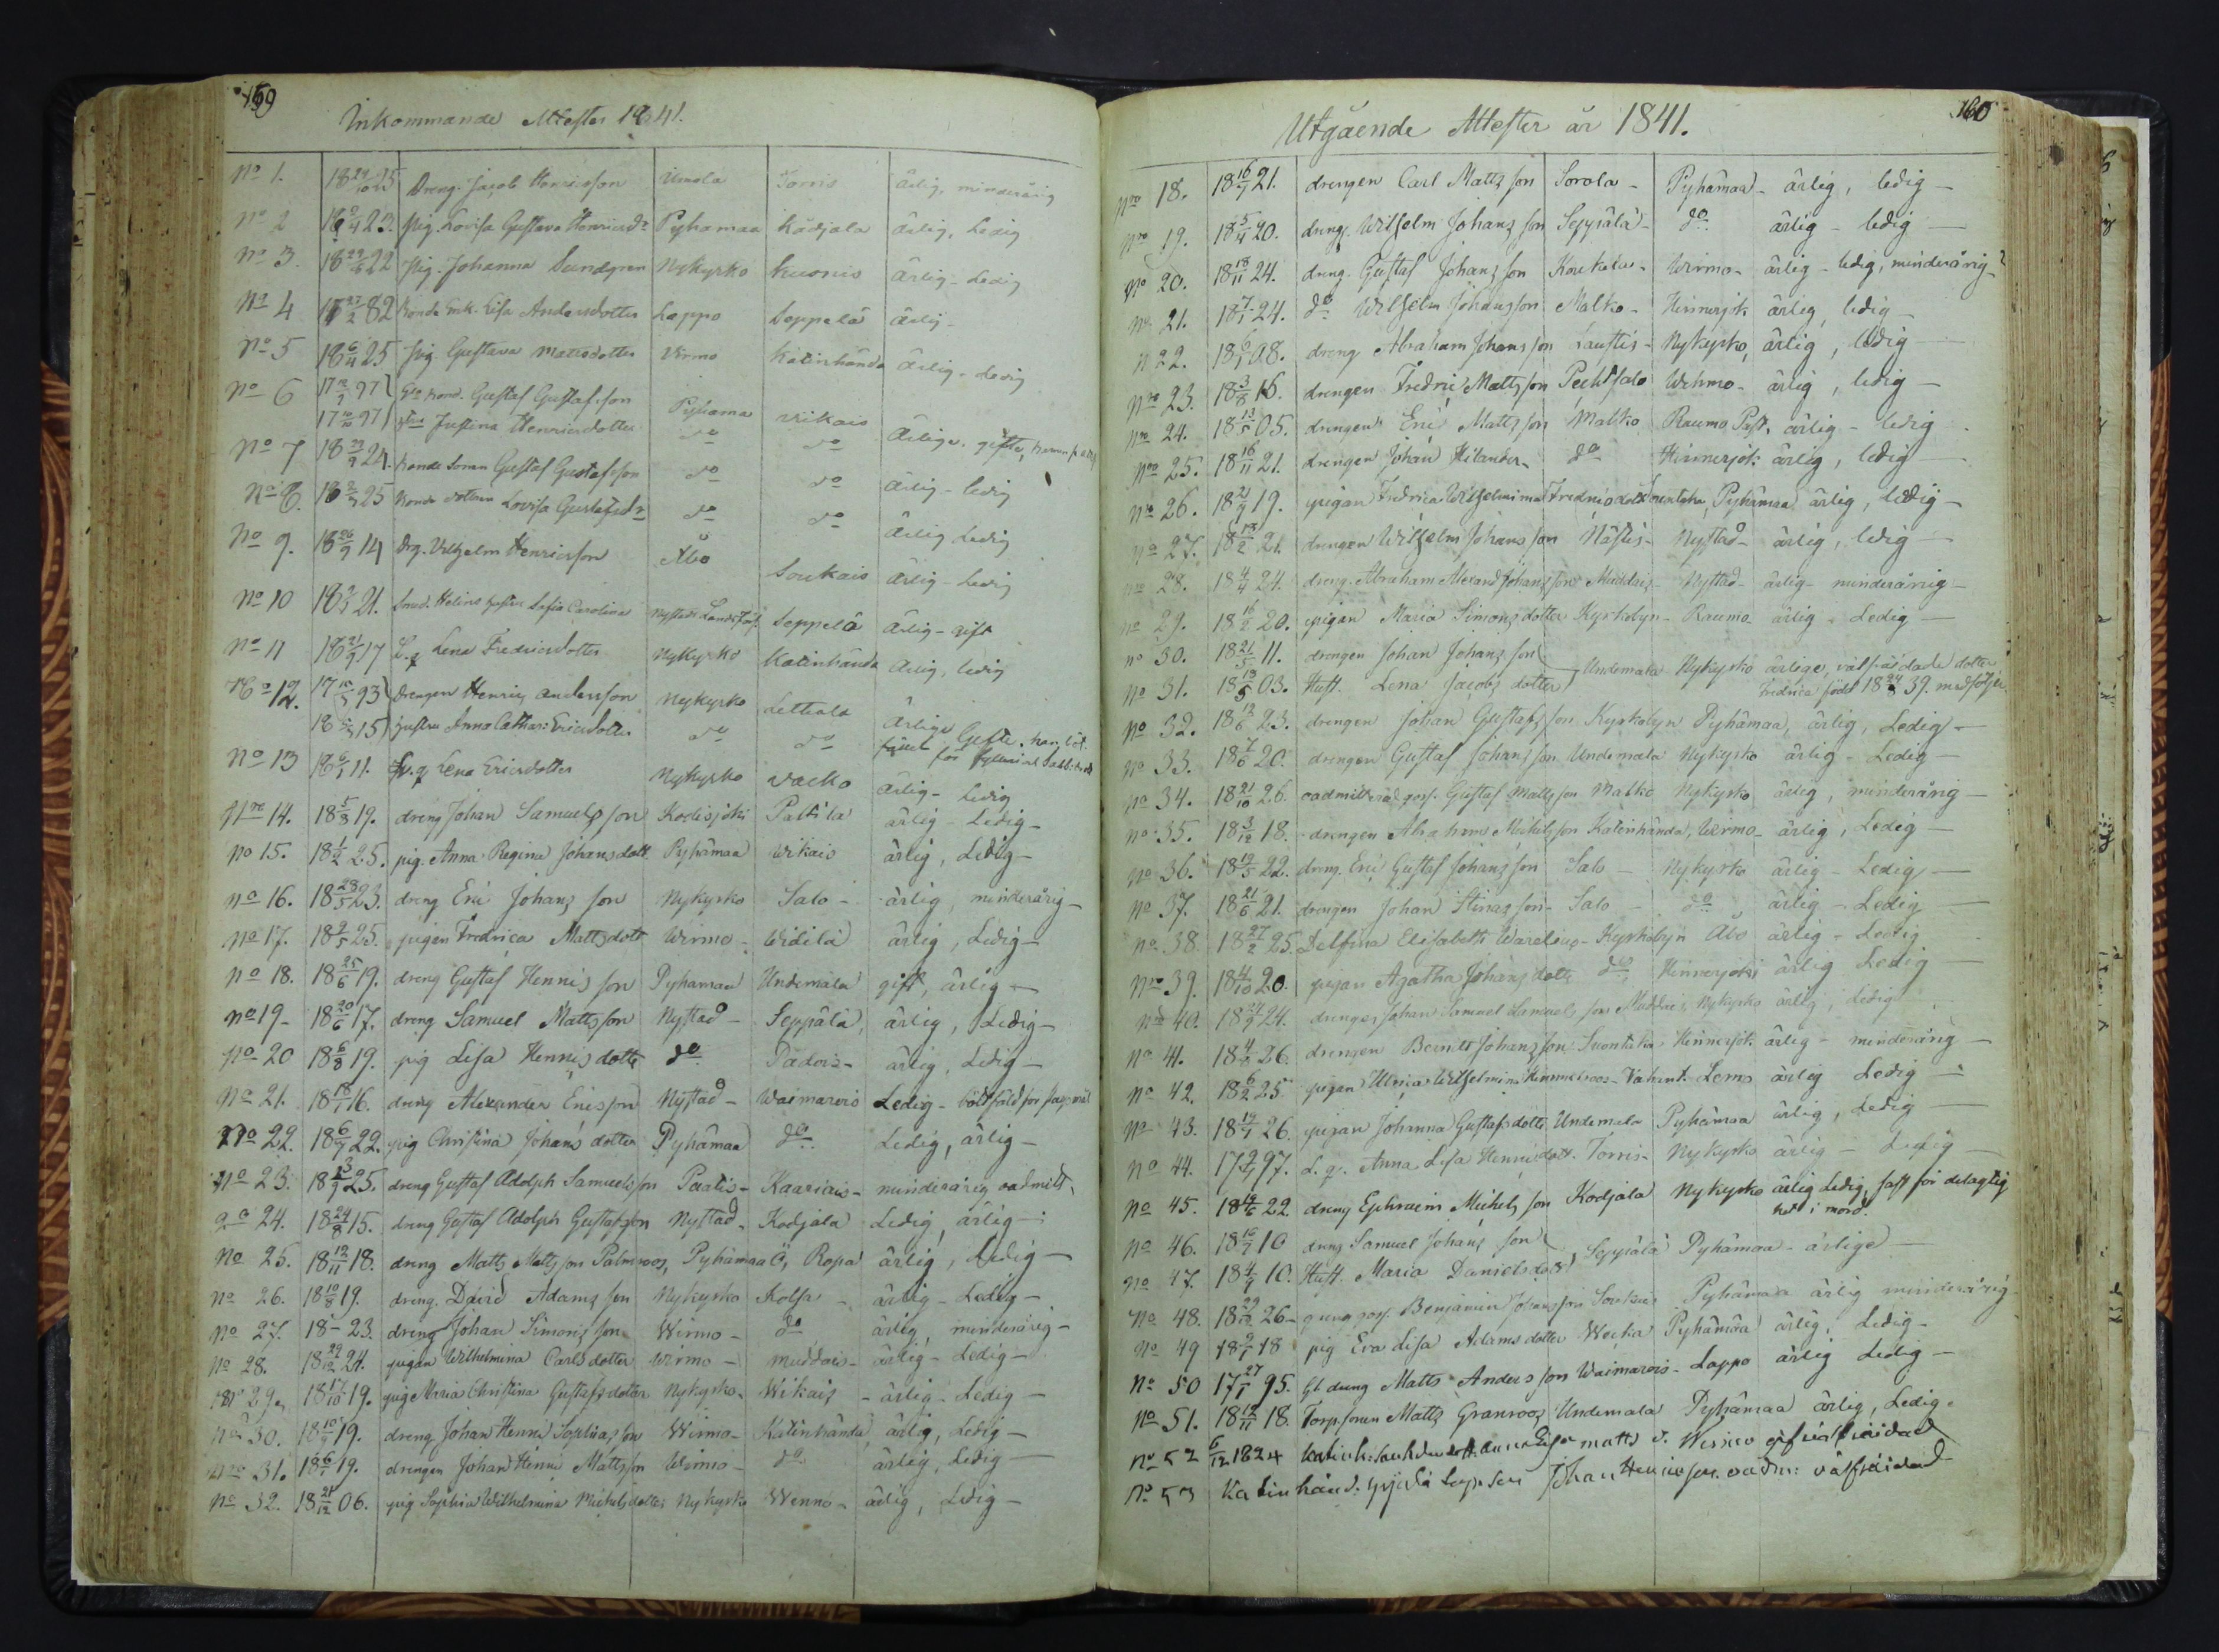 159
Inkommande Attester 1841.
No 1. 18 24/10 25 Dreng. Jacob Henricsson Torris ärlig, minderårig
No 2 pig. Lovisa Gustava Henricsdr Pyhamaa Kodjala ärlig, Ledig
No 3. 22 pig. Johanna Sundgren Nykyrko Kuonis ärlig - Ledig
No 4 82 Bonde Enk. Lisa Andersdotter Lappo Seppelä ärlig -
No 5 18 6/4 25 pig. Gustava Matsdotter Virmo Katinhända ärlig - Ledig
No 6 97 Bond. Gustaf Gustafsson Pyhama Vikais
97 Justina Henricsdotter do do ärliga, gifte,
No 7 24. Bonde Sonen Gustaf Gustafsson do do ärlig - ledig
No 8. 25 Bonde dottern Lovisa Gustafsdr do do ärlig Ledig
No 9. 18 26/9 14 Drg. Vilhelm Henricsson Åbo Soukais ärlig - Ledig
No 10 21. Helins hustru Sofia Carolina Seppelä ärlig - gift
No 11 18 21/9 17 L. q Lena Fredricsdotter Nykyrko Katinhända ärlig, ledig
No 12. 93 Drengen Henric Andersson Nykyrko
15 hustru Anna Cathar: Ericsdotter do do ärliga Gifte.
No 13 18 6/1 11. L. q Lena Ericsdotter Nykyrko Vacko ärlig - ledig
Nro 14. 18 5/8 19. dreng Johan Samuelsson Kodisjoki Paltila ärlig - Ledig -
No 15. 18 1/2 25. pig. Anna Regina Johansdott Pyhämaa Wikais ärlig, Ledig -
No 16. 18 28/5 23. dreng Eric Johans son Nykyrko Salo - ärlig, minderårig -
No 17. 18 9/5 25. pigan Fredrica Mattsdott Wirmo - Widila ärlig, Ledig -
No 18. 18 25/6 19. dreng Gustaf Henricsson Pyhamaa Undemala gift, ärlig -
No 19 - 18 20/6 17. dreng Samuel Mattsson Nystad - Seppälä, ärlig, Ledig -
No 20 18 6/8 19. pig Lisa Henricsdotter do Padois - ärlig, Ledig -
No 21. 18 18/1 16. dreng Alexander Ericsson Nystad - Waimarois Ledig -
No 22. 18 6/7 22. pig Christina Johansdotter Pyhämaa do Ledig, ärlig -
No 23. 25. dreng Gustaf Adolph Samuelsson Paatis - Kaariais - minderårig oadmitt.
No 24. 18 24/8 15. dreng Gustaf Adolph Gustafsson Nystad. Kodjala Ledig, ärlig -
No 25. 18 12/11 18. dreng Matts Mattsson Palmroos, Pyhämaa Ö, Ropa ärlig, Ledig -
No 26. 18 10/8 19. dreng. David Adamsson Nykyrko Kolsa - ärlig - Ledig -
No 27. 18 - 23. dreng Johan Simonsson Wirmo - do ärlig, minderårig -
No 28. 18 29/12 24. pigan Wilhelmina Carlsdotter Wirmo - Muddais - ärlig - Ledig -
No 29. 18 17/10 19. pig Maria Christina Gustafsdotter Nykyrko. Wikais - ärlig - Ledig -
No 30. 18 10/9 19. dreng Johan Henric Sophiasson Wirmo - Katinhända ärlig, Ledig -
No 31. 18 6/1 19. drengen Johan Henric Mattsson Wirmo - do ärlig, Ledig -
No 32. 18 21/12 06. pig Sophia Wilhelmina Michelsdotter Nykyrko Wenno - ärlig, Ledig -
160
Utgående Attester år 1841.
Nro 18. 18 16/9 21. drengen Carl Matts son Sorola - Pyhämaa - ärlig, ledig -
Nro 19. 18 5/4 20. dreng. Wilhelm Johans son Seppälä - do ärlig - ledig -
No 20. 18 18/11 24. dreng. Gustaf Johans son Koukela - Wirmo - ärlig - ledig, minderårig -
No 21. 24. do Wilhelm Johansson Malko - Hinnerjok. ärlig, ledig -
No 22. 18 6/1 08. dreng Abraham Johansson Laustis - Nykyrko, ärlig, ledig
Nro 23. 18 3/8 16. drengen Fredric Mattsson Peeksalo Wehmo - ärlig, ledig -
No 24. 18 13/5 05. drengen Eric Mattsson Malko Raumo Past. ärlig - ledig -
Nro 25. 18 16/11 21. drengen Johan Hilander - do Hinnerjok. ärlig, ledig -
No 26. 19. pigan Fredrica Wilhelmina Fredricsdott Suontaka, Pyhämaa ärlig, ledig -
No 27. 18 13/2 21. drengen Wilhelm Johansson Nästis - Nystad - ärlig, ledig -
No 28. 18 4/4 24. dreng. Abraham Alexand Johansson Muddais - Nystad - ärlig - minderårig -
No 29. 20. pigan Maria Simonsdotter Kyrkobyn - Raumo. ärlig - Ledig -
No 30. 18 21/5 11. drengen Johan Johansson Undemala Nykyrko ärlige, välfräjdade dotter
No 31. 18 13/5 03. Hust. Lena Jacobsdotter Fredrica född 39. medföljer.
No 32. 18 12/6 23. drengen Johan Gustafsson Kyrkobyn Pyhämaa, ärlig, Ledig -
No 33. 18 7/6 20. drengen Gustaf Johansson Undemala Nykyrko ärlig - Ledig -
No 34. 18 21/10 26. oadmitterad goss. Gustaf Mattsson Malko Nykyrko ärlig, minderårig -
No 35. 18 3/12 18. drengen Abraham Michelsson Katinhända, Wirmo - ärlig, Ledig -
No 36. 18 19/5 22. dreng. Eric Gustaf Johansson Salo - Nykyrko ärlig - Ledig -
No 37. 18 21/6 21. drengen Johan Stinasson - Salo - do ärlig - Ledig
No 38. 18 27/2 25. Delfina Elisabeth Warelius - Kyrkobyn Åbo ärlig - Ledig
No 39. 18 4/10 20. pigan Agatha Johansdotter do Hinnerjoki ärlig Ledig
No 40. 18 24/9 24. drengen Johan Samuel Samuelsson Muddais, Nykyrko ärlig, Ledig
No 41. 26. drengen Berndt Johansson Suontaka Hinnerjok. ärlig - minderårig -
No 42. 18 6/2 25. pigan Ulrica Wilhelmina Himmelroos - Vahant. Lemo ärlig Ledig
No 43. 18 19/1 26. pigan Johanna Gustafsdotter Undemala Pyhämaa ärlig, Ledig -
No 44. 97. L. q. Anna Lisa Henricsdott. Torris - Nykyrko ärlig - Ledig
No 45. 22. dreng Ephraim Michelsson Kodjala Nykyrko ärlig Ledig, fast för delagtig
het i mord.
No 46. 10 dreng Samuel Johans son Seppälä Pyhämaa - ärlige -
No 47. 10. Hust. Maria Danielsdott
No 48. 26 - Benjamin Johansson Soukais Pyhämaa ärlig minderårig -
No 49 18 pig Eva Lisa Adamsdotter Wecka Pyhämaa ärlig, Ledig -
No 50 17 27/1 95. Gl. dreng Matts Andersson Waimarois - Lappo ärlig Ledig -
No 51. 18 12/11 18. Torp. sonen Matts Granroos Undemala Pyhämaa ärlig, Ledig -
No 52 6/12 1824 Matts d. Wirmo
No 53 Katinhänd. Johan Henricsson välfräjdad